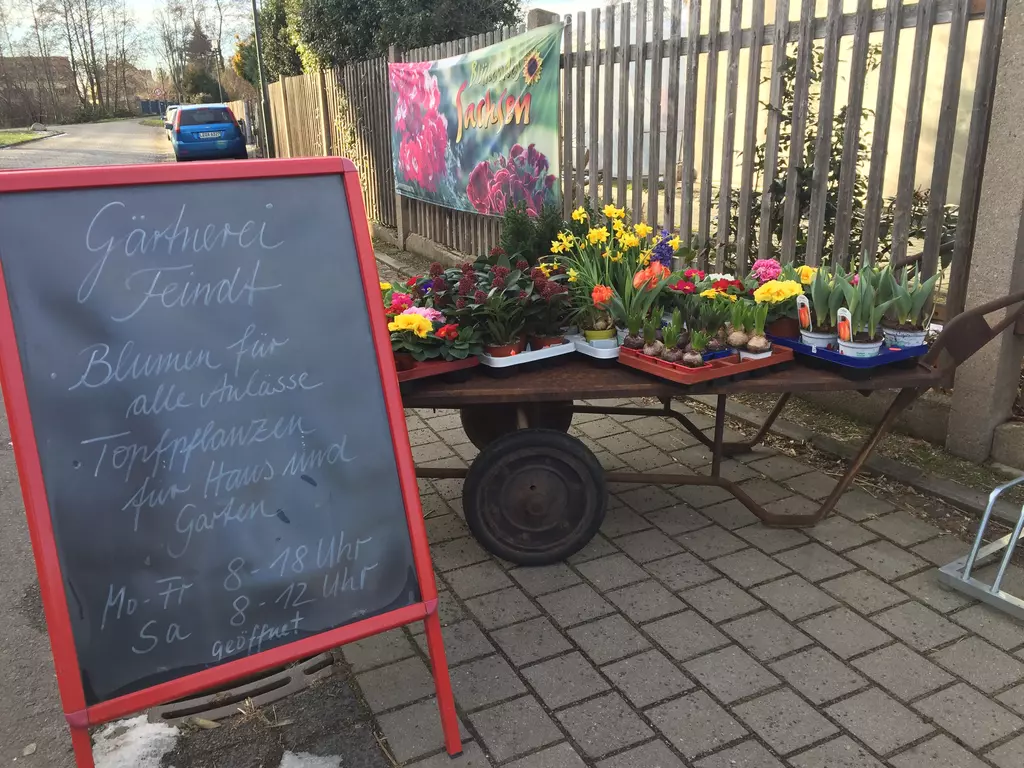 Gärtnerei
Feindt
Blumen für
alle Anlässe
Topfpflanzen
für Haus und
Garten
Mo-Fr 8-18 Uhr
Sa 8-12 Uhr
geöffnet
Sachsen